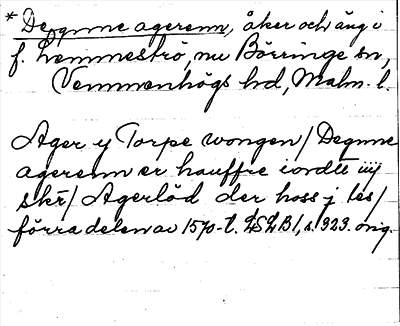 * Degnne agerenn, åker och äng i
f. Lemmeströ, nu Börringe sn,
Vemmenhögs hd, Malm. l.
Ager y Torpe wongen / Degnne
agerenn er hauffre iordtt iiij
skr / Agerlöd der hoss j les /
förra delen av 1570-t. LSLB 1, s. 323. orig.